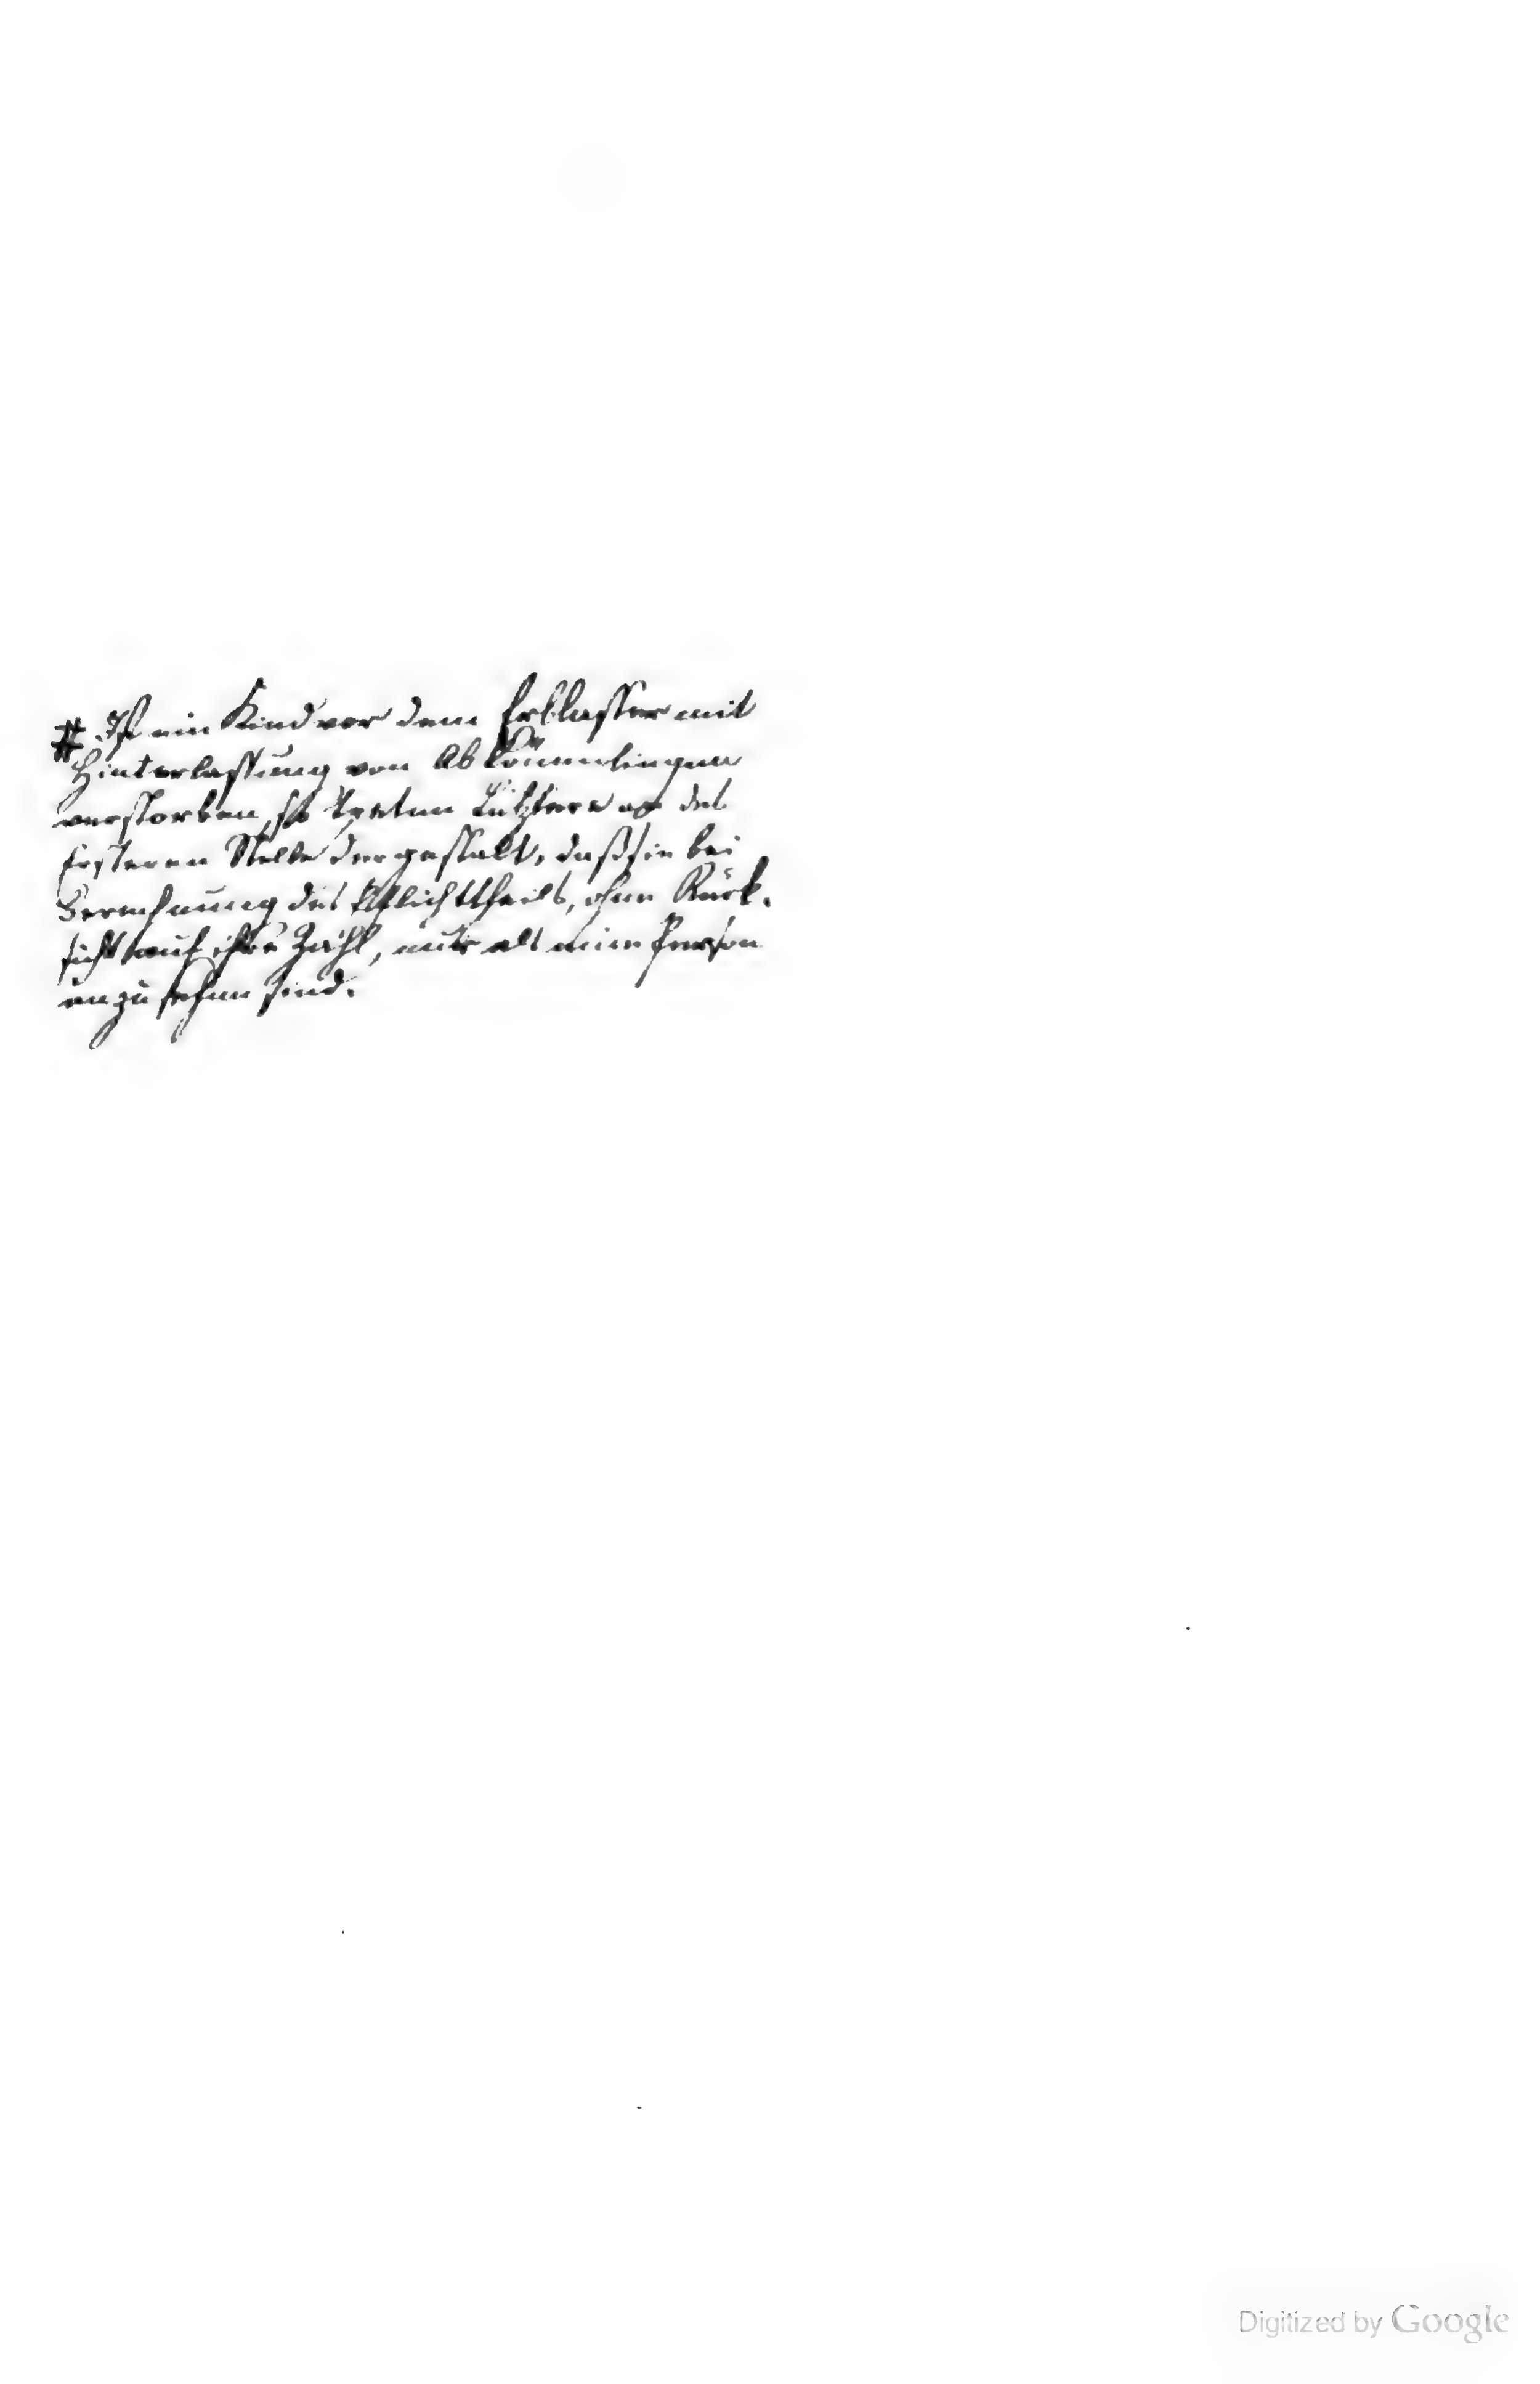 # Ist ein Kind vor dem Erblasser mit
Hinterlassung von Abkömmlingen
verstorben, so treten Letztere an des
Ersteren Stelle dergestalt, daß sie bei
Berechnung des Pflichttheils, ohne Rück-
sicht auf ihre Zahl, nur als eine Person
anzusehen sind.
Digitized by Google